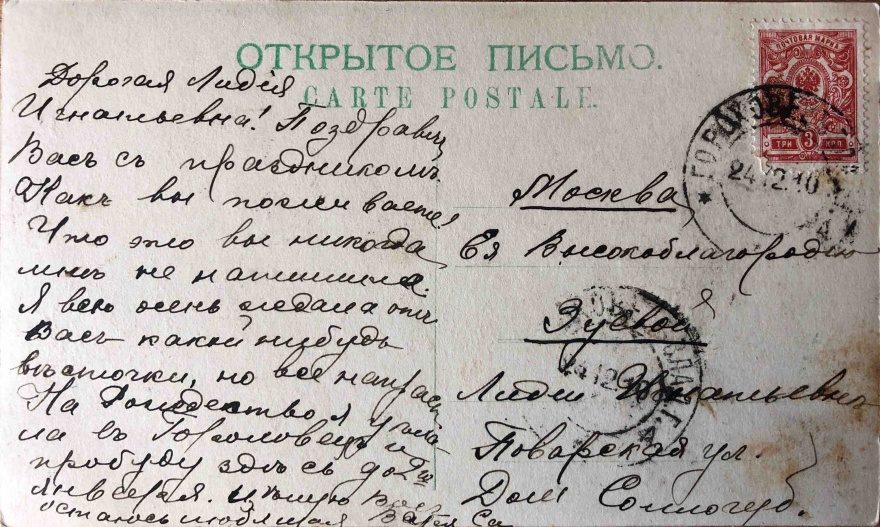 ОТКРЫТОЕ ПИСЬМО.
CARTE POSTALE.
Дорогая Лидія
Игнатьевна! Поздравл
Васъ съ праздникомъ.
Какъ вы поживаете?
Что это вы никогда
мнѣ не напишите.
Я всю осень ждала отъ
Васъ какой нибудь
вѣсточки, но все напрас
На Рождество я уѣха
ла въ Гороховецъ и
пробуду здѣсь до
января. Цѣлую Васъ
остаюсь любящая Васъ
ПОЧТОВАЯ МАРКА
ТРИ 3 КОП
ГОРОХОВЕ
24 12 10
Москва
Ея Высокоблагородію
Лидіи Игнатьевнѣ
Поварская ул.
Дом